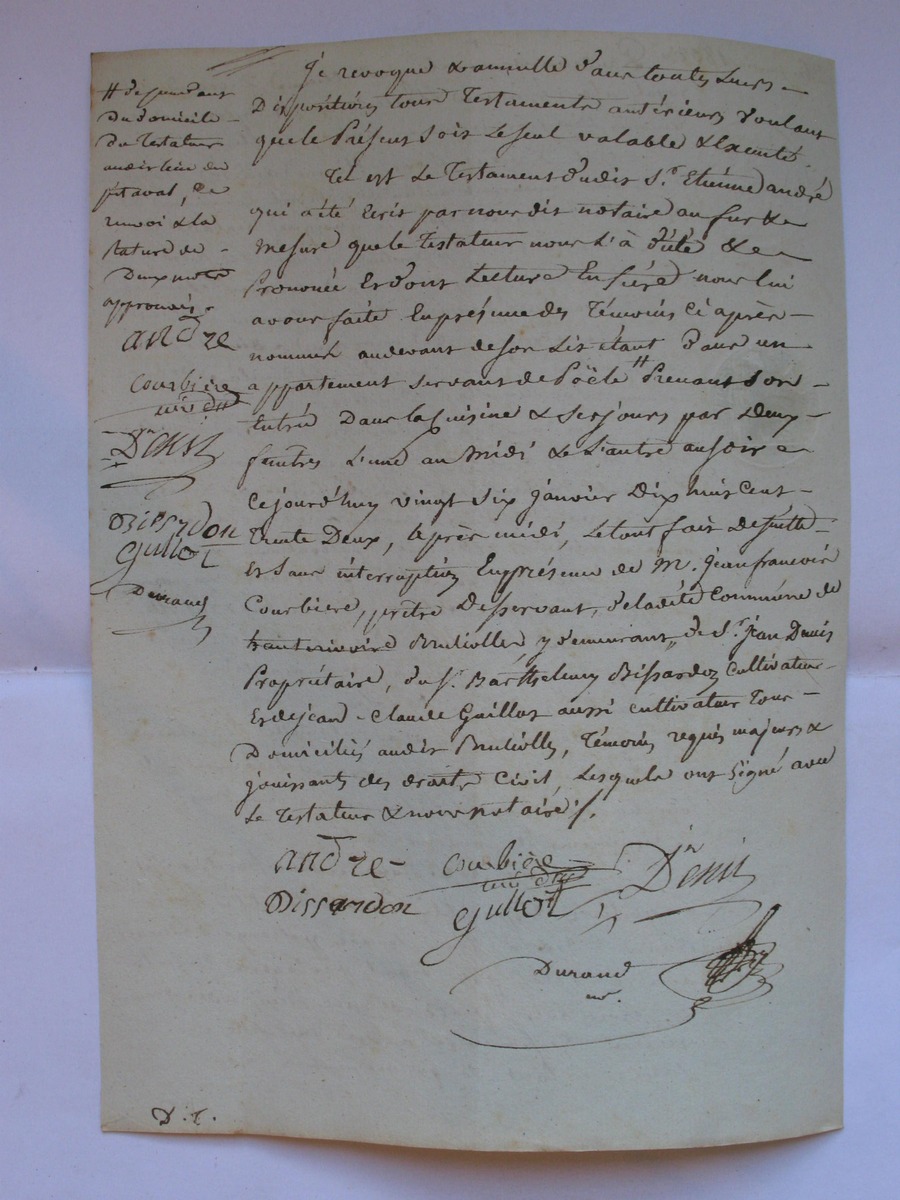 Je revoque & annulle dans toutes Leurs
Dispositions tous Testaments antérieurs voulant
que le Présent soit Le seul valable & Exécuté.
Tel est Le Testament dudit Sr. Etienne andré
qui a été Ecrit par nous dit notaire au fur & 
mesure que le Testateur nous L'à dicté & 
Prononcé Et dont Lecture Entière nous lui
avons faite En présence des Témoins Ci après
nommés au devant de son Lit étant dans un
appartement servant de Poële # Prenant son
Entrée Dans la Cuisine & ses jours par Deux
fenêtres L'une au midi & L'autre au soir
Cejourd'huy vingt six janvier Dix huit Cent
Trente Deux, après midi, Le tout fait de suitte
Et sans interruption En présence de M. Jean francois
Courbiere, prêtre Desservant, de ladite Commune de
Brullioles y demeurant, de Sr. Jean Denis
Propriétaire, du Sr. Barthelemy Bissardon Cultivateur
Et de jean-Claude Guillot aussi Cultivateur Tous
Domiciliés audit Brullioles, Témoins requis majeurs &
jouissants des droits Civils, Lesquels ont Signé avec
Le Testateur & nous notaire ./.
andre Courbière Denis
Bissardon Gullot
Durand
nre.
# dependant
Du domicile
Du Testateur
audit lieu du
pitaval, Le
renvoi & la
rature de
Deux mots
approuvés.
andre
Courbière
Denis
Bissardon
Gullot
Durand
D. T.